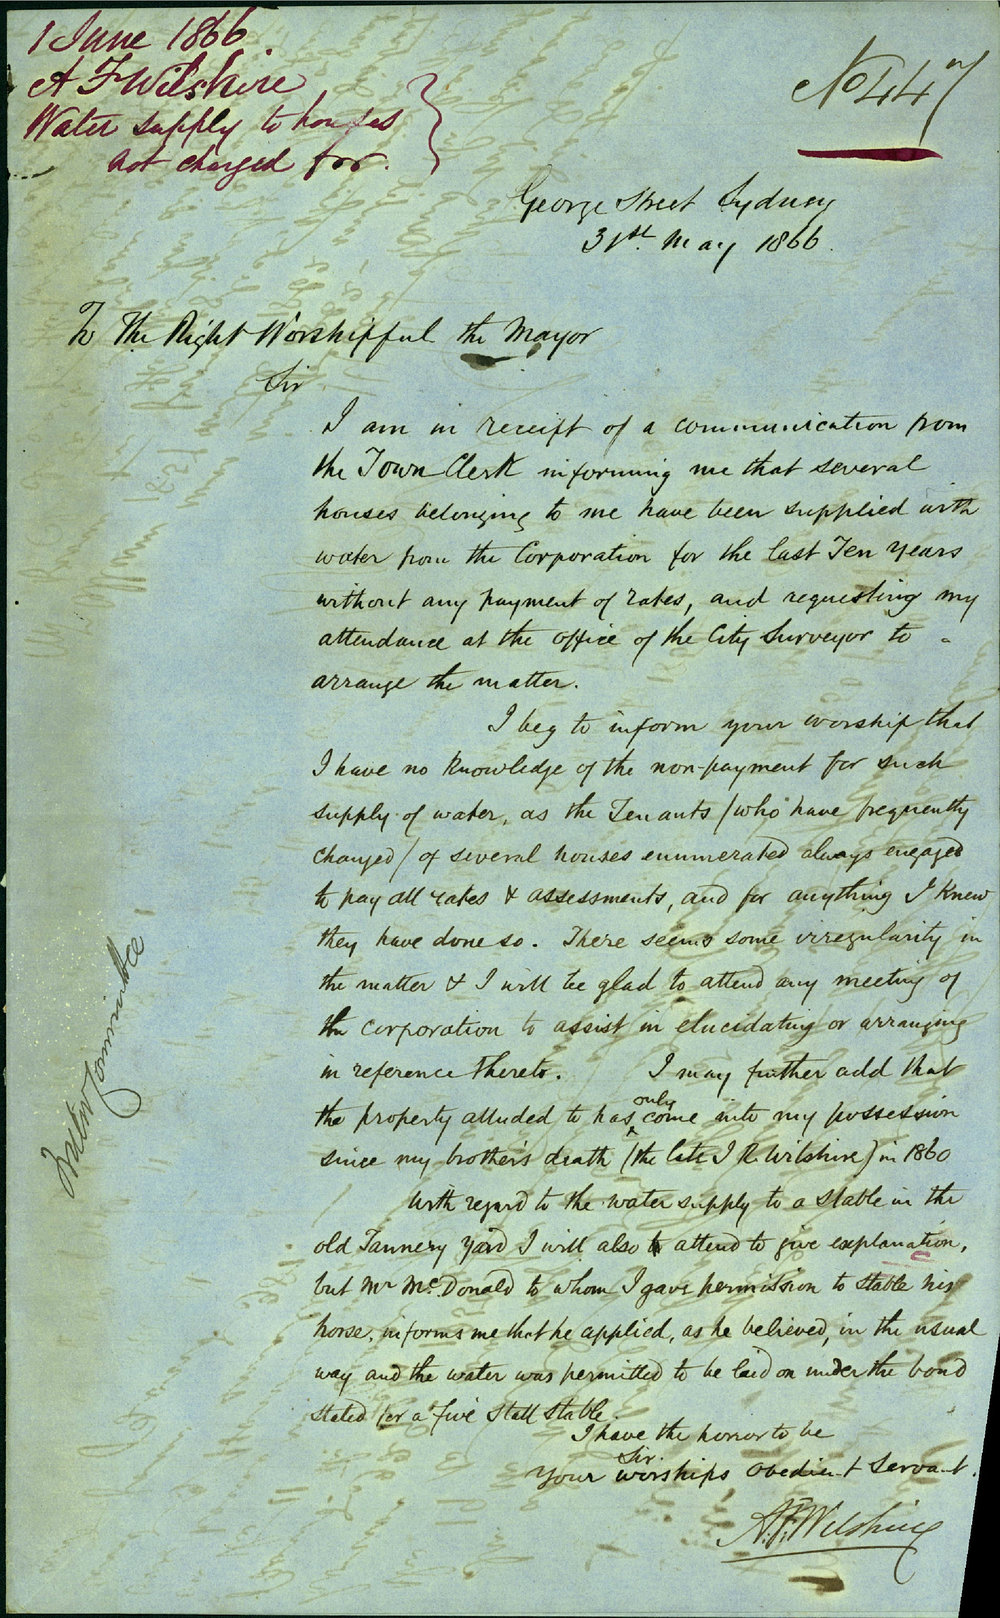 1 June 1866.
A F Wilshire
Water supply to houses
not charged for.
No 447
George Street Sydney
31st. May 1866.
To The Right Worshipful the Mayor
Sir
I am in receipt of a communication from
the Town Clerk informing me that several
houses belonging to me have been supplied with
water from the Corporation for the last Ten Years
without any payment of rates, and requesting my
attendance at the office of the City Surveyor to
arrange the matter.
I beg to inform your worship that
I have no knowledge of the non-payment for such
supply of water, as the Tenants (who have frequently
changed) of several houses enumerated always engaged
to pay all rates & assessments, and for anything I knew
they have done so. There seems some irregularity in
the matter & I will be glad to attend any meeting of
the Corporation to assist in elucidating or arranging
in reference thereto. I may further add that
the property alluded to has only come into my possession
since my brother's death (the late J R Wilshire) in 1860
With regard to the water supply to a stable in the
old Tannery Yard I will also attend to give explanation,
but Mr McDonald to whom I gave permission to stable his
horse, informs me that he applied, as he believed, in the usual
way and the water was permitted to be laid on under the bond
stated for a five stall stable.
I have the honor to be
Sir
Your worships obedient Servant.
A. F. Wilshire
Water Committee